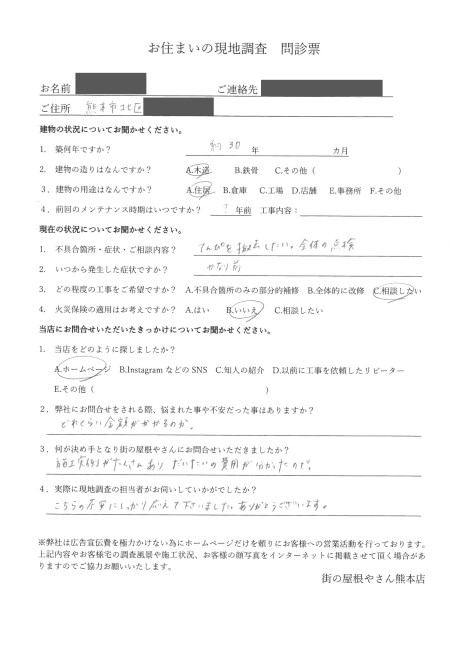 お住まいの現地調査　問診票
お名前　ご連絡先
ご住所　熊本市北区
建物の状況についてお聞かせください。
1.　築何年ですか？　約30　年　カ月
2.　建物の造りはなんですか？　A.木造　B.鉄骨　C.その他（　）
3．建物の用途はなんですか？　A.住居　B.倉庫　C.工場　D.店舗　E.事務所　F.その他
4．前回のメンテナンス時期はいつですか？　？　年前　工事内容：
現在の状況についてお聞かせください。
1.　不具合箇所・症状・ご相談内容？　てんぴを撤去したい。全体の点検
2.　いつから発生した症状ですか？　かなり前
3.　どの程度の工事をご希望ですか？　A.不具合箇所のみの部分的補修　B.全体的に改修　C.相談したい
4.　火災保険の適用はお考えですか？　A.はい　B.いいえ　C.相談したい
当店にお問合せいただいたきっかけについてお聞かせください。
1.　当店をどのように探しましたか？
A.ホームページ　B.Instagram などの SNS　C.知人の紹介　D.以前に工事を依頼したリピーター
E.その他（　）
2．弊社にお問合せをされる際、悩まれた事や不安だった事はありますか？
どれくらい金額がかかるのか。
3．何が決め手となり街の屋根やさんにお問合せいただきましたか？
施工実例がたくさんあり、だいたいの費用が分かったので。
4．実際に現地調査の担当者がお伺いしていかがでしたか？
こちらの不安にしっかり応えて下さいました。ありがとうございます。
※弊社は広告宣伝費を極力かけない為にホームページだけを頼りにお客様への営業活動を行っております。
上記内容やお客様宅の調査風景や施工状況、お客様の顔写真をインターネットに掲載させて頂く場合があ
りますのでご協力お願いいたします。
街の屋根やさん熊本店